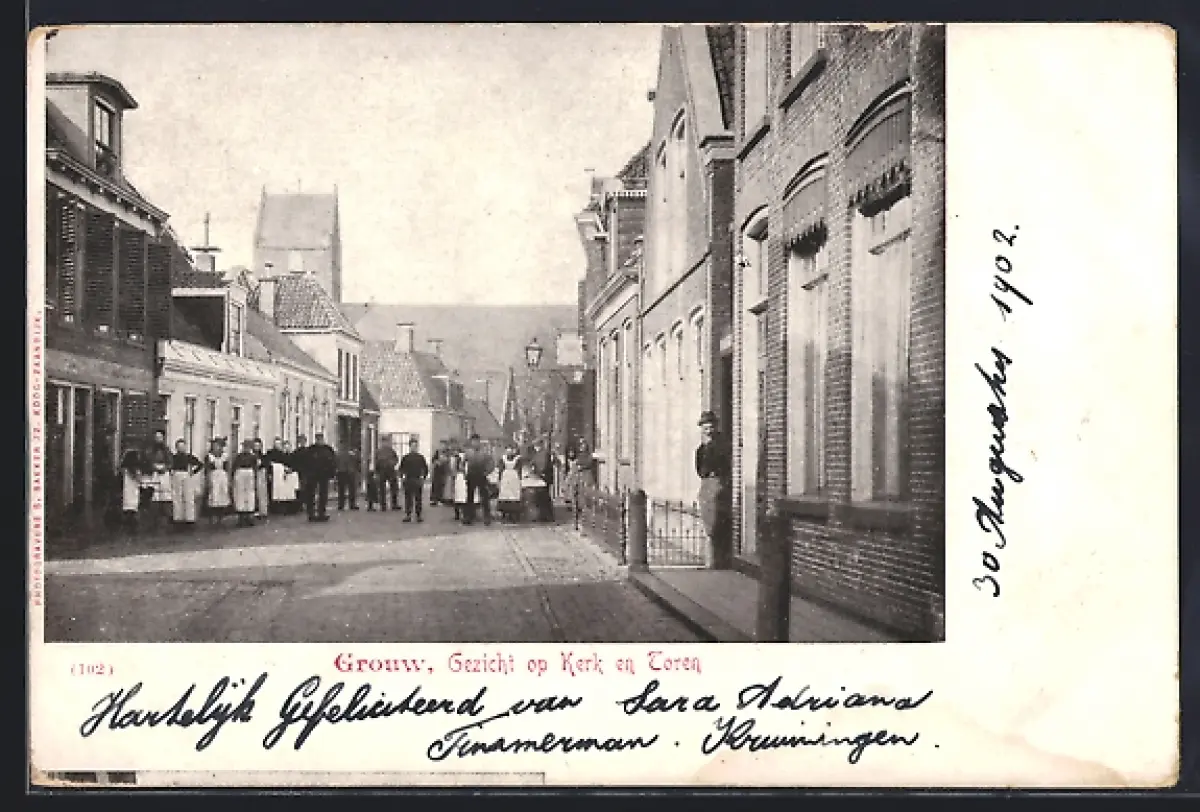 PHOTOGRAVURE G. BAKKER JZ. KOOG-ZAANDIJK.
(102)
Grouw, Gezicht op Kerk en Toren
Hartelijk Gefeliciteerd van Sara Adriana
Timmerman. Kruiningen.
30 Augustus 1902.